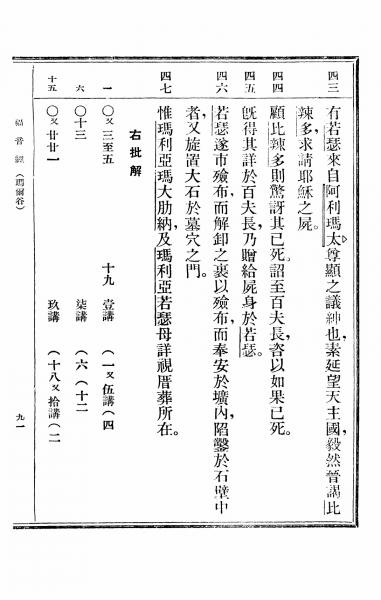 四三
有若瑟來自阿利瑪太尊顯之議紳也，素延望天主國，毅然晉謁比
辣多，求請耶穌之屍。
四四
顧比辣多則驚訝其已死，詔至百夫長，咨以如果已死。
四五
旣得其詳於百夫長，乃贈給屍身於若瑟。
四六
若瑟遂市殮布，而解卸之，裹以殮布，而奉安於壙內，陷鑿於石壁中
者，又旋置大石於墓穴之門。
四七
惟瑪利亞瑪大肋納，及瑪利亞若瑟母，詳視厝葬所在。
右批解
一
〇又三至五
十九
壹講
（一又伍講（四
六
〇十三
柒講
（六（十二
十五
〇又廿廿一
玖講
（十八又拾講（二
福音經（瑪爾谷）
九一